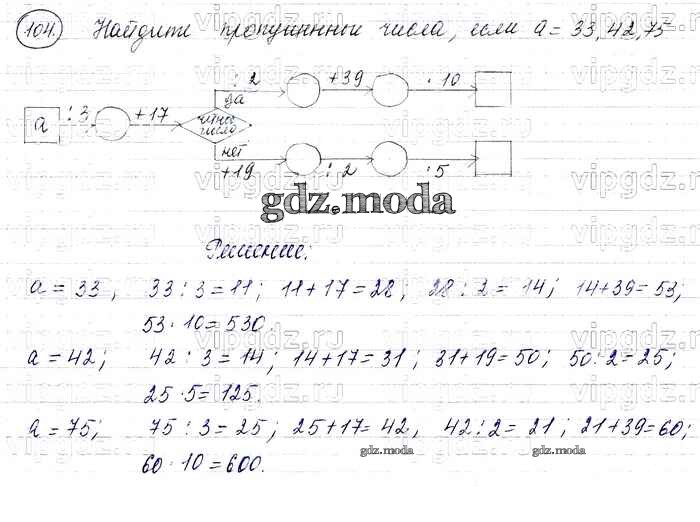 104. Найдите пропущенные числа, если a = 33, 42, 75
: 2 +39 · 10
да
a : 3 +17 четное
число
нет
+19 : 2 · 5
gdz.moda
Решение:
a = 33, 33 : 3 = 11; 11 + 17 = 28; 28 : 2 = 14; 14 + 39 = 53;
53 · 10 = 530
a = 42; 42 : 3 = 14; 14 + 17 = 31; 31 + 19 = 50; 50 : 2 = 25;
25 · 5 = 125.
a = 75; 75 : 3 = 25; 25 + 17 = 42, 42 : 2 = 21; 21 + 39 = 60;
gdz.moda gdz.moda
60 · 10 = 600.
vipgdz.ru